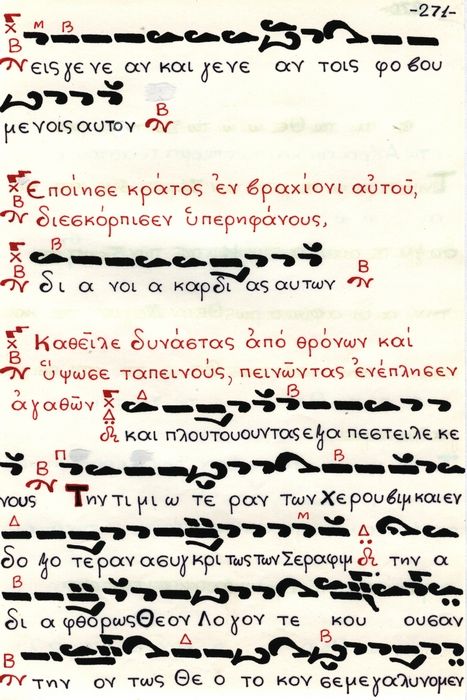 -271-
εις γε νε αν και γενε αν τοις φο βου
μενοις αυτον
Ἐποίησε κράτος ἐν βραχίονι αὐτοῦ,
διεσκόρπισεν ὑπερηφάνους,
δι α νοι α καρδι ας αυτων
Καθεῖλε δυνάστας ἀπό θρόνων καί
ὕψωσε ταπεινούς, πεινῶντας ἐνέπλησεν
ἀγαθῶν
και πλουτουουντας εξα πεστειλε κε
νους Την τι μι ω τε ραν των χερουβιμ και εν
δο ξο τεραν ασυγκρι τως των Σεραφιμ την α
δι α φθορως Θεον Λο γον τε κου ουσαν
την ον τως Θε ο το κον σε με γαλυνομεν